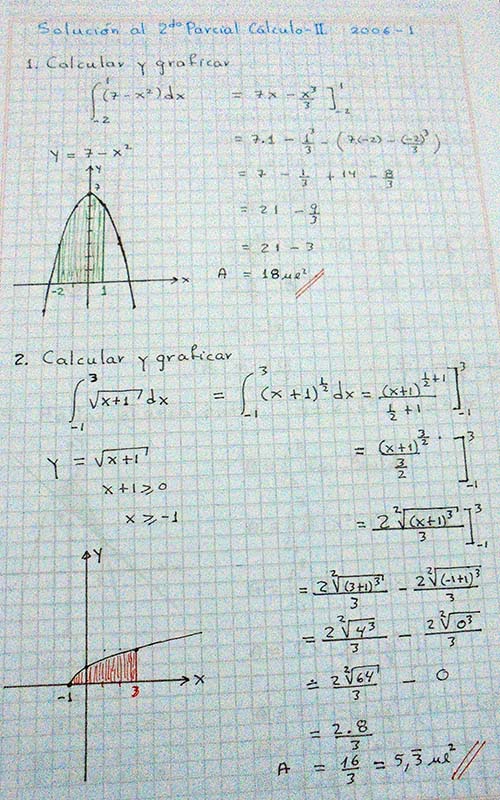 Solución al 2do Parcial Cálculo-II 2006-1
1. Calcular y graficar
∫₋₂¹ (7-x²)dx = 7x - x³/3 ]₋₂¹
= 7.1 - 1³/3 - (7(-2) - (-2)³/3)
y = 7-x²
= 7 - 1/3 + 14 - 8/3
= 21 - 9/3
= 21 - 3
A = 18 ul²
Y
7
-2 1 x
2. Calcular y graficar
∫₋₁³ √(x+1) dx = ∫₋₁³ (x+1)^(1/2) dx = (x+1)^(1/2+1) / (1/2+1) ]₋₁³
Y = √(x+1)
= (x+1)^(3/2) / (3/2) ]₋₁³
x+1 ≥ 0
x ≥ -1
= 2 ²√(x+1)³ / 3 ]₋₁³
Y
-1 3 X
= 2 ²√(3+1)³ / 3 - 2 ²√(-1+1)³ / 3
= 2 ²√4³ / 3 - 2 ²√0³ / 3
= 2 ²√64 / 3 - 0
= 2.8 / 3
A = 16/3 = 5,3̅ ul²